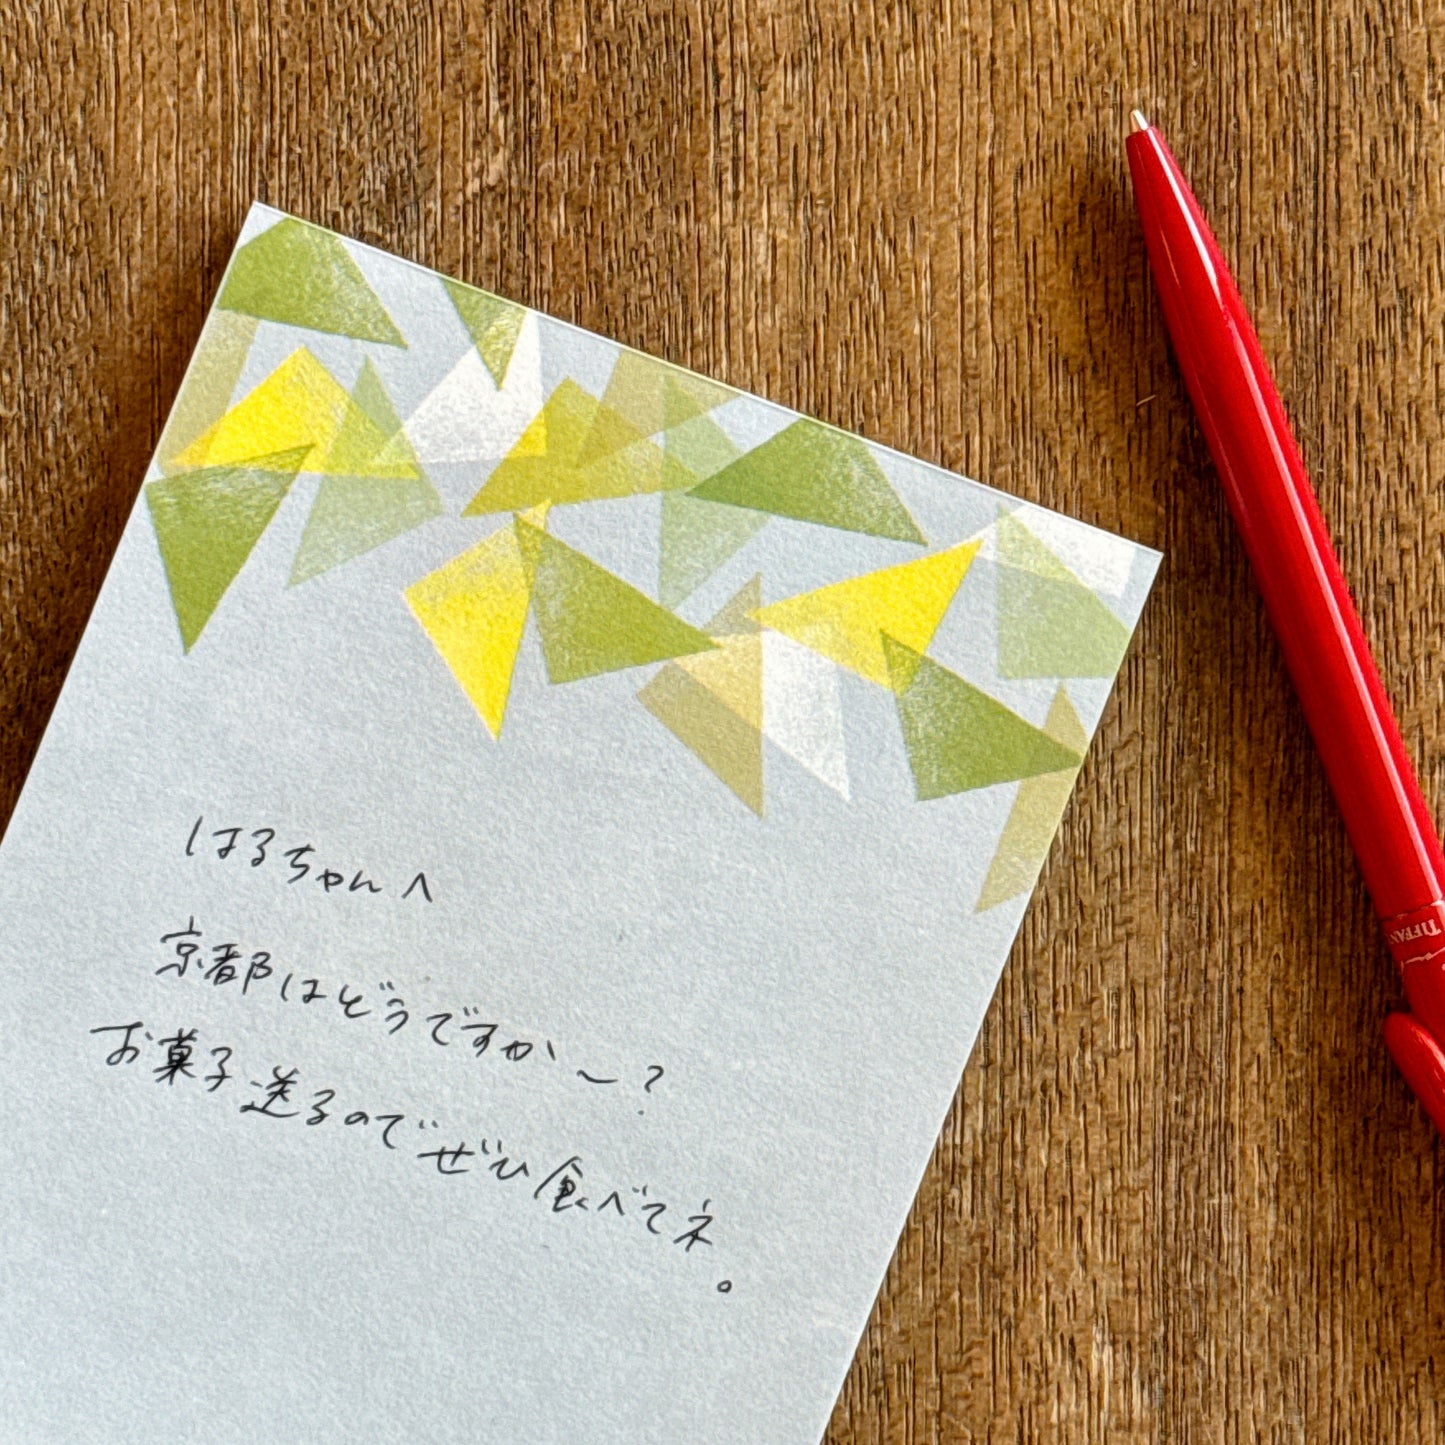 はるちゃんへ
京都はどうですか〜？
お菓子送るのでぜひ食べてネ。
TIFFAN